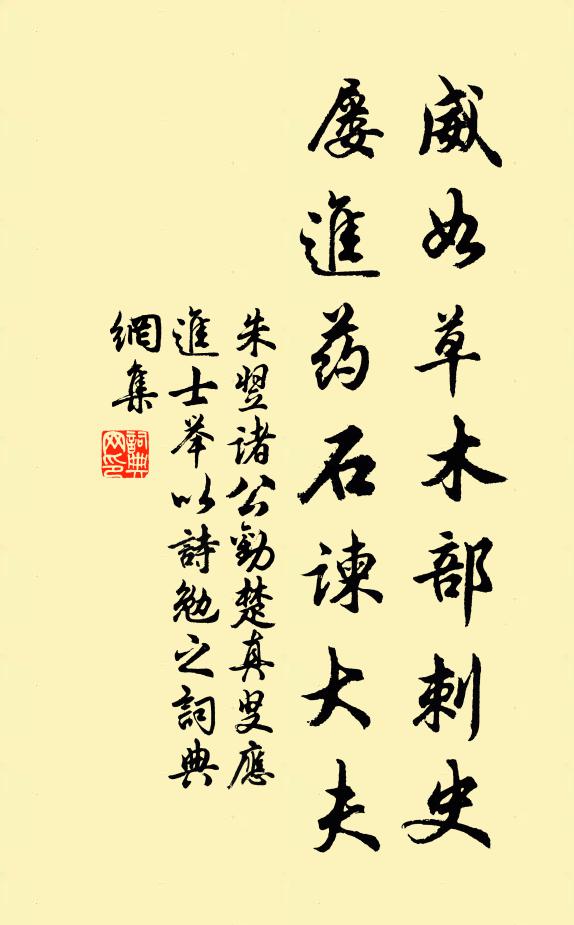 威如草木部刺史
屡進药石諫大夫
朱翌诸公勸楚真叟應
進士举以詩勉之詞典
網集
詞典网印